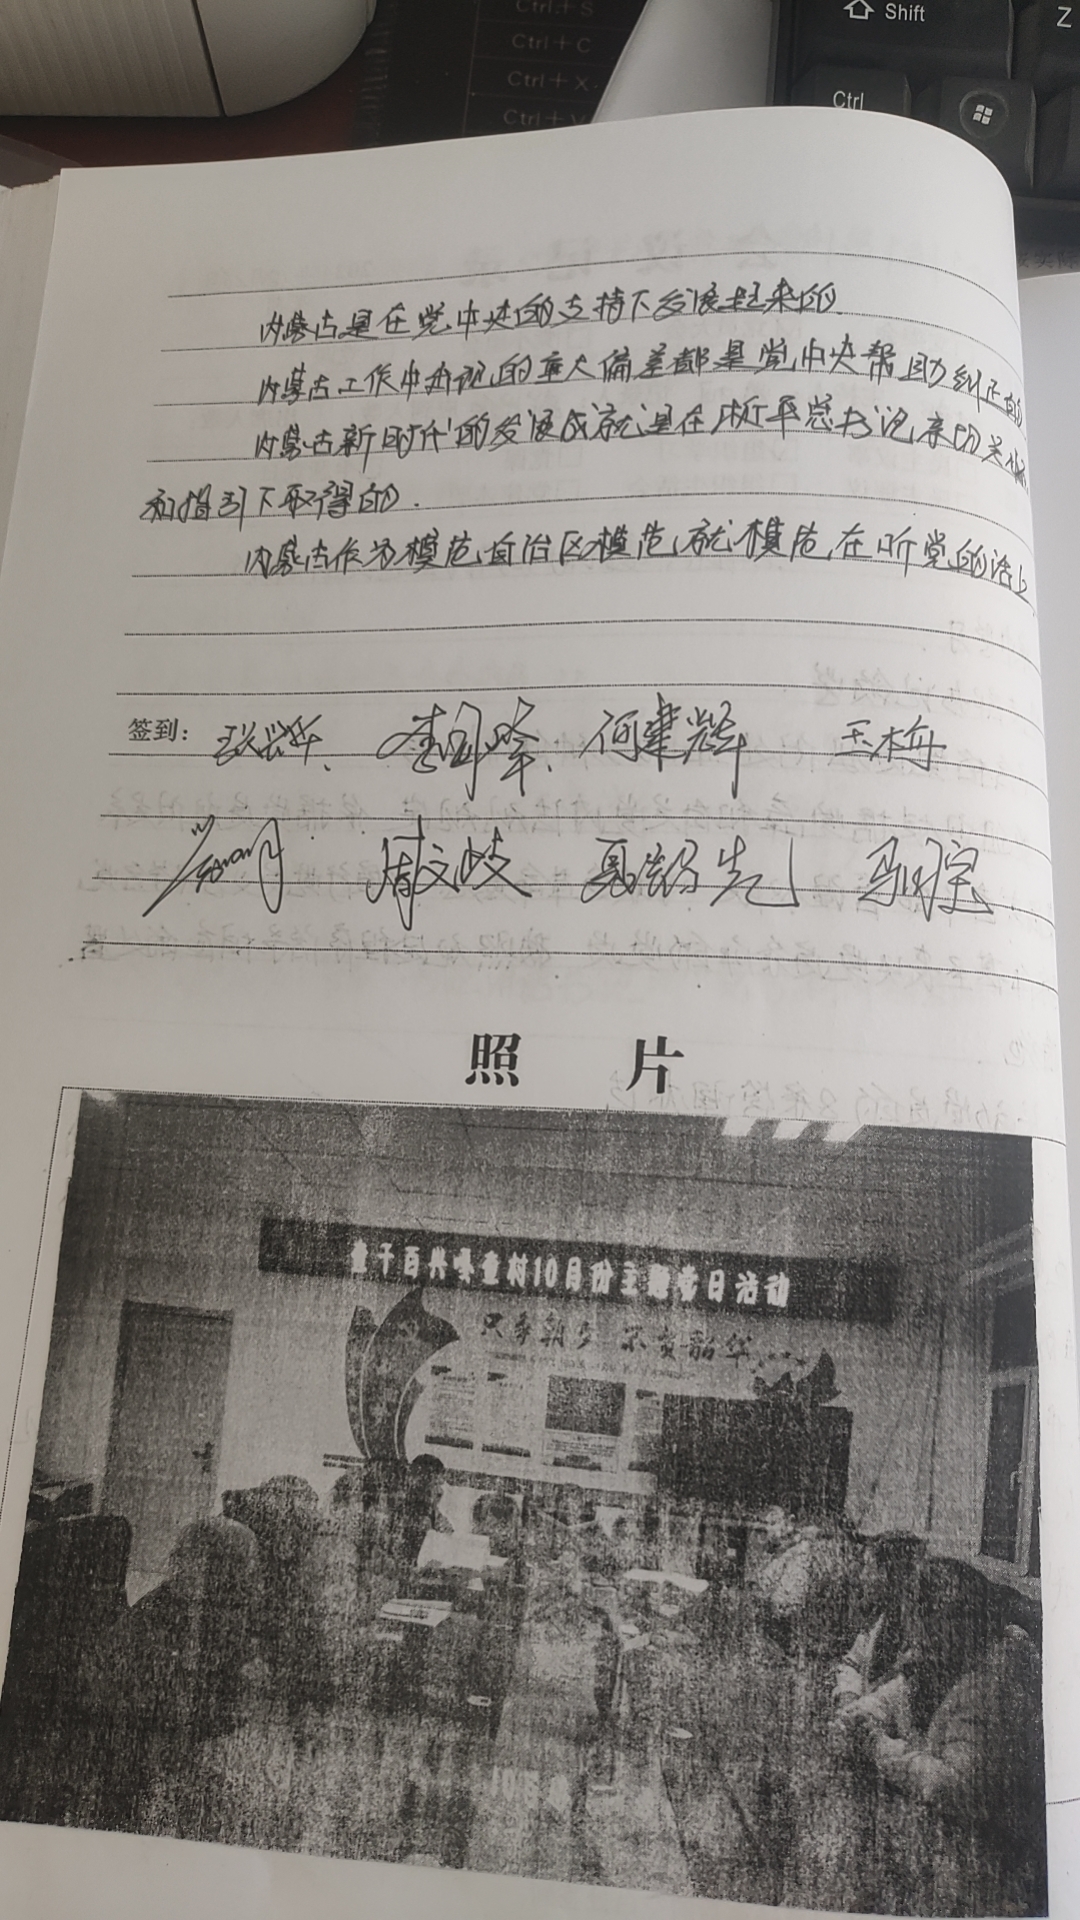 Ctrl+S
Ctrl+C
Ctrl+X
Ctrl+V
Shift
Z
Ctrl
内蒙古是在党中央的支持下发展起来的.
内蒙古工作中出现的重大偏差都是党中央帮助纠正的
内蒙古新时代的发展成就是在习近平总书记亲切关怀
和指引下取得的.
内蒙古作为模范自治区模范就模范在听党的话上
签到:
李国峰、何建辉 王树舟
周文岐
照 片
查干百兴嘎查村10月份主题党日活动
只争朝夕 不负韶华